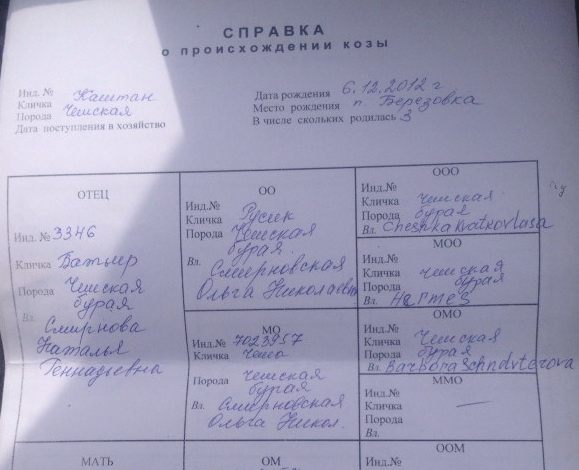 СПРАВКА
о происхождении козы
Инд. №
Кличка Каштан
Порода Чешская
Дата поступления в хозяйство
Дата рождения 6.12.2012 г
Место рождения п. Березовка
В числе скольких родилась 3
ОТЕЦ
Инд. № 3346
Кличка Батыр
Порода Чешская
бурая
Вл Смирнова
Наталья
Геннадьевна
ОО
Инд.№
Кличка Русик
Порода Чешская
бурая
Вл. Смирновская
Ольга Николаевн
МО
Инд.№ 7023957
Кличка
Порода чешская
бурая
Вл. Смирновская
Ольга Никол.
ООО
Инд.№
Кличка чешская
Порода бурая
Вл. Cheshka Kratkovlasa
МОО
Инд.№
Кличка чешская
Порода бурая
Вл. Hermes
ОМО
Инд.№
Кличка Чешская
Порода бурая
Вл. Barbora
ММО
Инд.№
Кличка —
Порода
Вл.
МАТЬ
ОМ
ООМ
Инд.№